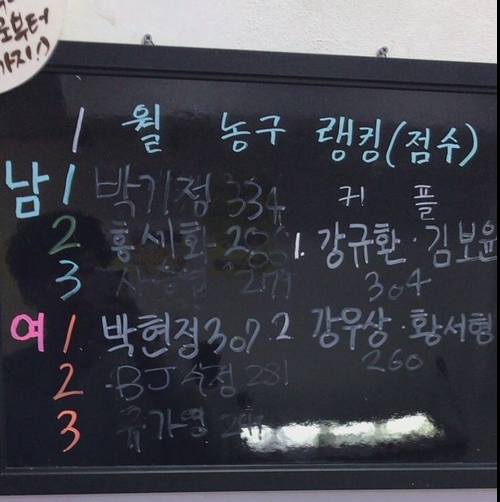 로부터
까지!)
1월 농구 랭킹(점수)
남 1 박기정 334
커플
2 홍세화 286
1. 강규환·김보윤
3
304
여 1. 박현정 307
2 강우상·황서형
260
2 BJ수정 281
3 류가영